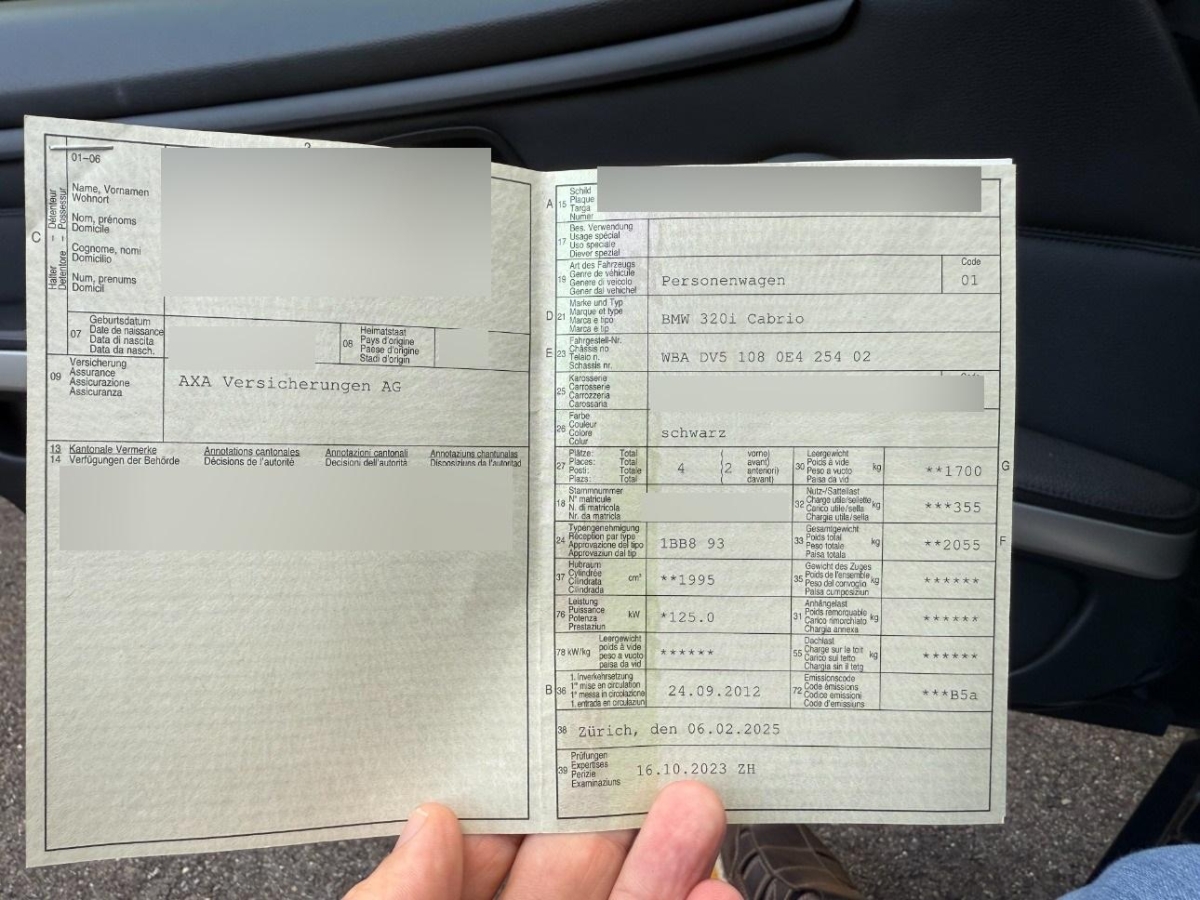 C
Halter – Détenteur
Detentore – Possessur
01–06
Name, Vornamen
Wohnort
Nom, prénoms
Domicile
Cognome, nomi
Domicilio
Num, prenums
Domicil
07
Geburtsdatum
Date de naissance
Data di nascita
Data da nasch.
08
Heimatstaat
Pays d'origine
Paese d'origine
Stadi d'origin
09
Versicherung
Assurance
Assicurazione
Assicuranza
AXA Versicherungen AG
13 Kantonale Vermerke Annotations cantonales Annotazioni cantonali Annotaziuns chantunalas
14 Verfügungen der Behörde Décisions de l'autorité Decisioni dell'autorità Disposiziuns da l'autoritad
A
15
Schild
Plaque
Targa
Numer
17
Bes. Verwendung
Usage spécial
Uso speciale
Diever spezial
19
Art des Fahrzeugs
Genre de véhicule
Genere di veicolo
Gener dal vehichel
Personenwagen
Code
01
D
21
Marke und Typ
Marque et type
Marca e tipo
Marca e tip
BMW 320i Cabrio
E
23
Fahrgestell-Nr.
Châssis no
Telaio n.
Schassis nr.
WBA DV5 108 0E4 254 02
25
Karosserie
Carrosserie
Carrozzeria
Carossaria
26
Farbe
Couleur
Colore
Colur
schwarz
27
Plätze: Total
Places: Total
Posti: Totale
Plazs: Total
4
(2
vorne)
avant)
anteriori)
davant)
30
Leergewicht
Poids à vide
Peso a vuoto
Paisa da vid
kg
**1700
G
18
Stammnummer
N° matricule
N. di matricola
Nr. da matricla
32
Nutz-/Sattellast
Charge utile/sellette
Carico utile/sella
Chargia utila/sella
kg
***355
24
Typengenehmigung
Réception par type
Approvazione del tipo
Approvaziun dal tip
1BB8 93
33
Gesamtgewicht
Poids total
Peso totale
Paisa totala
kg
**2055
F
37
Hubraum
Cylindrée
Cilindrata
Cilindrada
cm³
**1995
35
Gewicht des Zuges
Poids de l'ensemble
Peso del convoglio
Paisa cumposiziun
kg
******
76
Leistung
Puissance
Potenza
Prestaziun
kW
*125.0
31
Anhängelast
Poids remorquable
Carico rimorchiato
Chargia annexa
kg
******
78 kW/kg
Leergewicht
poids à vide
peso a vuoto
paisa da vid
******
55
Dachlast
Charge sur le toit
Carico sul tetto
Chargia sin il tetg
kg
******
B
36
1. Inverkehrsetzung
1re mise en circulation
1a messa in circolazione
1. entrada en circulaziun
24.09.2012
72
Emissionscode
Code émissions
Codice emissioni
Code d'emissiuns
***B5a
38
Zürich, den 06.02.2025
39
Prüfungen
Expertises
Perizie
Examinaziuns
16.10.2023 ZH